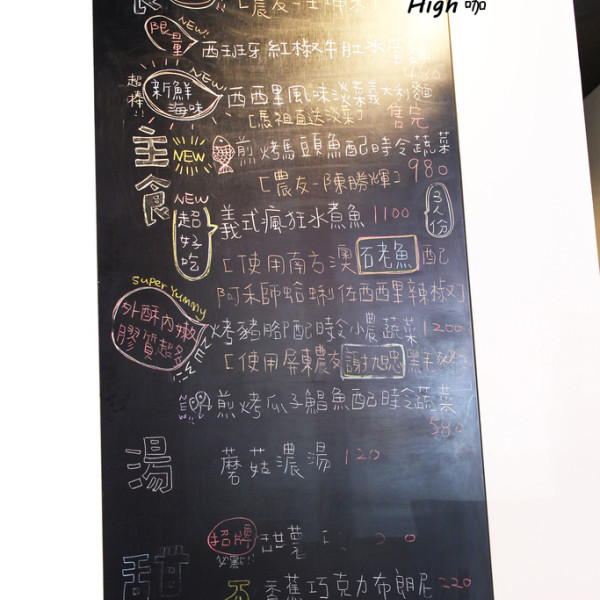 High 咖
限量 NEW!
西班牙紅椒牛肚
超棒!! 新鮮海味 NEW
西西里風味淡菜義大利麵
[馬祖直送淡菜] 售完
主食
NEW 煎烤馬頭魚配時令蔬菜
980
[農友-陳勝輝]
NEW 超好吃 義式瘋狂水煮魚 1100 3人份
[使用南方澳 石老魚 配
阿禾師蛤蜊佐西西里辣椒]
super Yummy
外酥內嫩 膠質超多 NEW
烤豬腳配時令小農蔬菜 1200
[使用屏東農友 謝旭忠 黑毛豬]
NEW 煎烤瓜子鯧魚配時令蔬菜
580
湯
蘑菇濃湯 120
招牌 必點!!
甜
香蕉巧克力布朗尼 220